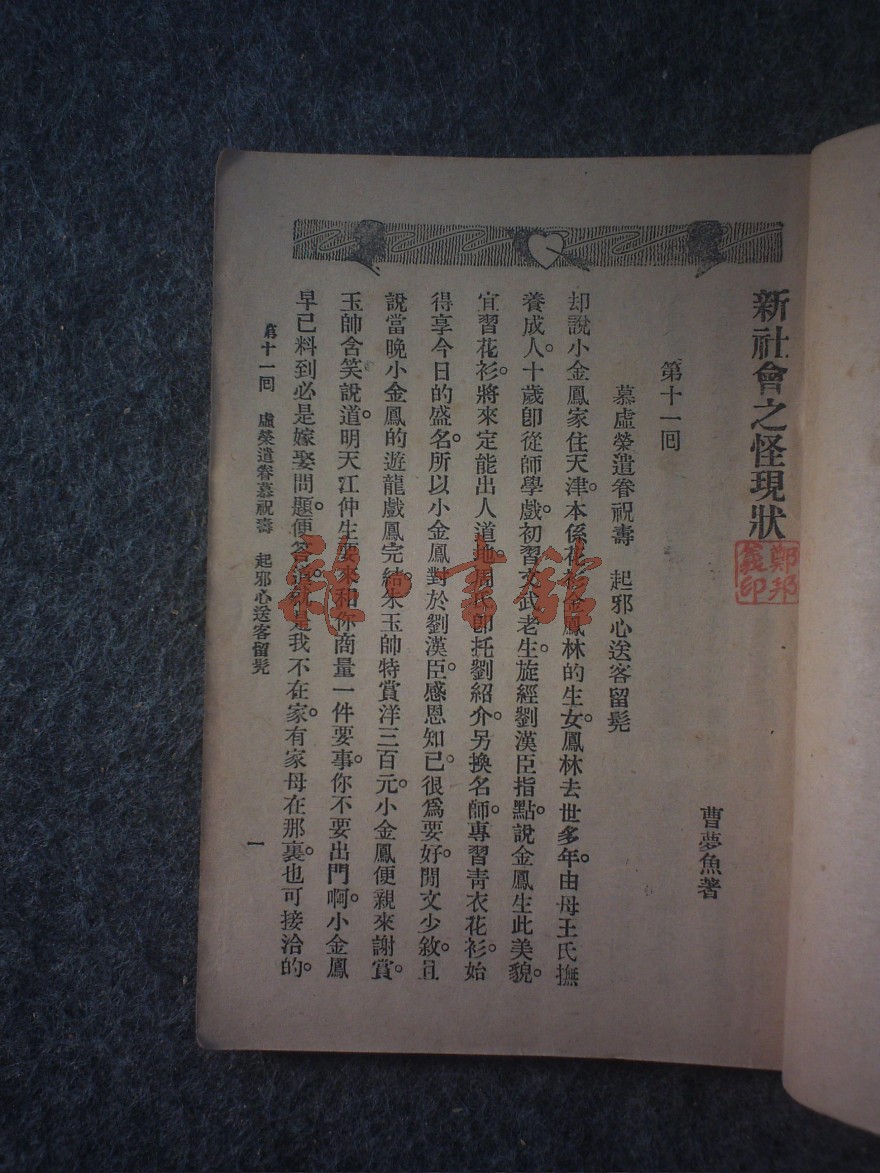 新社會之怪現狀
鄭邦義印
曹夢魚著
第十一回
慕虛榮遣眷祝壽　起邪心送客留髡
却說小金鳳家住天津。本係花金鳳林的生女。鳳林去世多年。由母王氏撫
養成人。十歲卽從師學戲。初習文武老生。旋經劉漢臣指點。說金鳳生此美貌。
宜習花衫。將來定能出人道地。周氏卽托劉紹介。另換名師。專習靑衣花衫。始
得享今日的盛名。所以小金鳳對於劉漢臣。感恩知已。很爲要好。閒文少敘。且
說當晚小金鳳的遊龍戲鳳完結。朱玉帥特賞洋三百元。小金鳳便親來謝賞。
玉帥含笑說道。明天江仲生要來和你商量一件要事。你不要出門啊。小金鳳
早已料到必是嫁娶問題。便答是我不在家。有家母在那裏。也可接洽的。
第十一回　虛榮遣眷慕祝壽　起邪心送客留髡
一
雜書館